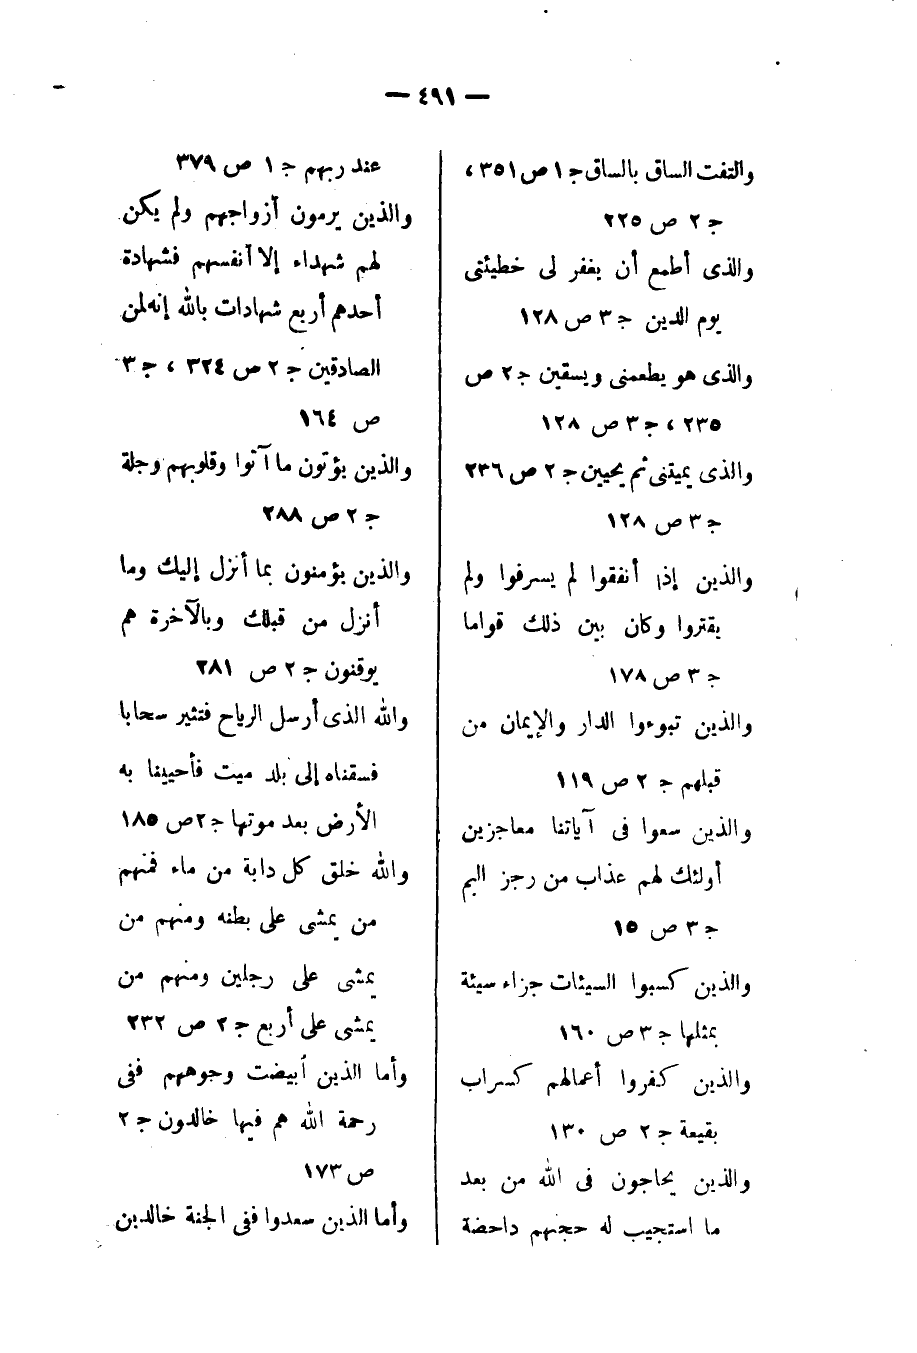 — ٤٩١ —
والتفت الساق بالساق ج ١ ص ٣٥١ ،
ج ٢ ص ٢٢٥
والذى أطمع أن يغفر لى خطيئتى
يوم الدين ج ٣ ص ١٢٨
والذى هو يطعمنى ويسقين ج ٢ ص
٢٣٥ ، ج ٣ ص ١٢٨
والذى يميتنى ثم يحيين ج ٢ ص ٢٣٦
ج ٣ ص ١٢٨
والذين إذا أنفقوا لم يسرفوا ولم
يقتروا وكان بين ذلك قواما
ج ٣ ص ١٧٨
والذين تبوءوا الدار والإيمان من
قبلهم ج ٢ ص ١١٩
والذين سعوا فى آياتنا معاجزين
أولئك لهم عذاب من رجز اليم
ج ٣ ص ١٥
والذين كسبوا السيئات جزاء سيئة
بمثلها ج ٣ ص ١٦٠
والذين كفروا أعمالهم كسراب
بقيعة ج ٢ ص ١٣٠
والذين يحاجون فى الله من بعد
ما استجيب له حجتهم داحضة
عند ربهم ج ١ ص ٣٧٩
والذين يرمون أزواجهم ولم يكن
لهم شهداء إلا أنفسهم فشهادة
أحدهم أربع شهادات بالله إنه لمن
الصادقين ج ٢ ص ٣٢٤ ، ج ٣
ص ١٦٤
والذين يؤتون ما آتوا وقلوبهم وجلة
ج ٢ ص ٢٨٨
والذين يؤمنون بما أنزل إليك وما
أنزل من قبلك وبالآخرة هم
يوقنون ج ٢ ص ٢٨١
والله الذى أرسل الرياح فتثير سحابا
فسقناه إلى بلد ميت فأحيينا به
الأرض بعد موتها ج ٢ ص ١٨٥
والله خلق كل دابة من ماء فمنهم
من يمشى على بطنه ومنهم من
يمشى على رجلين ومنهم من
يمشى على أربع ج ٢ ص ٢٣٢
وأما الذين أبيضت وجوههم ففى
رحمة الله هم فيها خالدون ج ٢
ص ١٧٣
وأما الذين سعدوا ففى الجنة خالدين